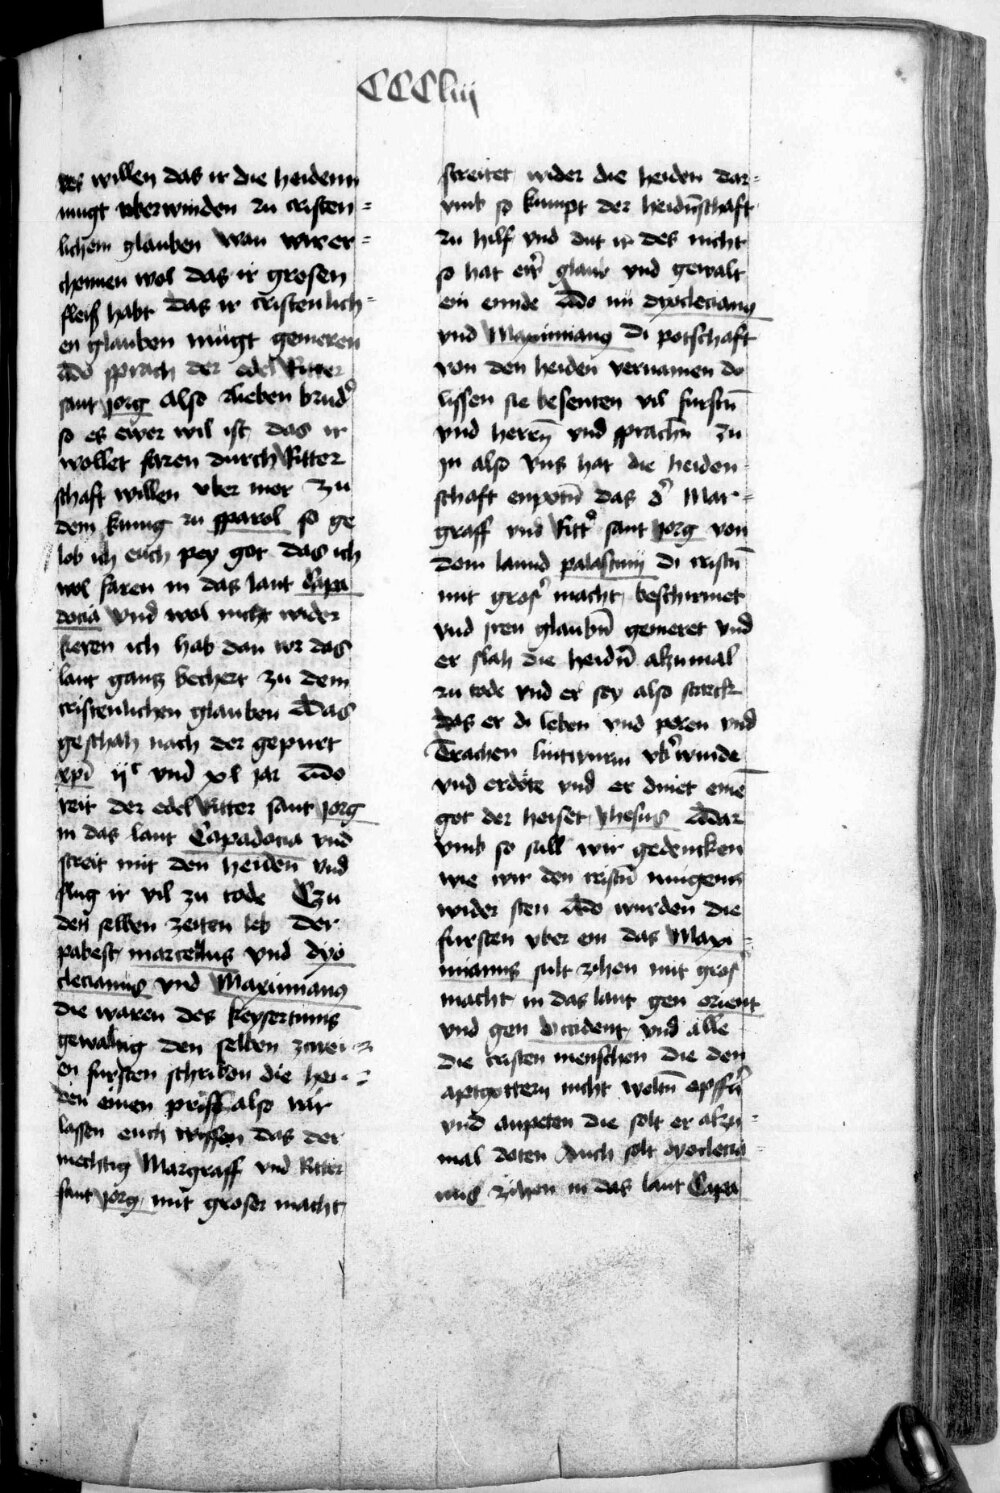 CCCliij
des willen das ir die heidenn
mugt vberwinden zu cristen=
lichem glauben wan wir er=
chennen wol das ir grosen
fleiß habt das ir cristenlich=
en glauben mügt gemeren
Ado sprach der edel Ritter
sant jorg Also lieben brud'
so es ewer wil ist das ir
wollet faren durch Ritter
schaft willen vber mer zu
dem kunig zu sparol so ge
lob ich euch pey got das ich
wol faren in das lant Capa
docia vnd wol nicht wider
keren ich hab dan vor das
lant gantz bechert zu dem
cristenlichen glauben Das
geschah nach der gepurt
xpi ijc vnd xl jar Ado
reit der edel Ritter sant jorg
in das lant Capadocia vnd
streit mit den heiden vnd
slug ir vil zu tode Czu
den selben zeiten leb der
pabest marcellus vnd dyo
clecianus vnd Maximianus
die waren des keysertums
gewaltig den selben zwei=
en fursten schriben die hei=
den einen priff also wir
lassen euch wissen das der
mechtig Margraff vnd Ritter
sant jorg mit groser macht
streitet wider die heiden dar=
vmb so kumpt der heidenschaft
zu hilf vnd dut ir des nicht
so hat ewr glaub vnd gewalt
ein ennde Ado nu dyoclecianus
vnd Maximianus di potschaft
von den heiden vernamen do
lissen sie besenten vil furstn
vnd heren vnd sprachn zu
jn also vns hat die heiden=
schaft enpotn das d' Mar=
graff vnd Ritt' sant jorg von
dem lannd palastinij di cristn
mit gros' macht beschirmet
vnd jren glaubn gemeret vnd
er slah die heidn alzumal
zu tode vnd er sey also starck
das er di leben vnd peren vnd
Trachen lintwurm vb'winde
vnd erdöte vnd er dinet eine
got der heiset yhesus Dar
vmb so sull wir gedencken
wie wir den cristn mugenn
wider sten Ado wurden die
fursten vber ein das Maxi=
mianus sult zihen mit gros'
macht in das lant gen orient
vnd gen occident vnd alle
die cristen menschen die den
aptgottern nicht woltn opff'n
vnd anpeten die solt er alzu=
mal doten Auch solt dyoclecia=
nus zihen in das lant Capa